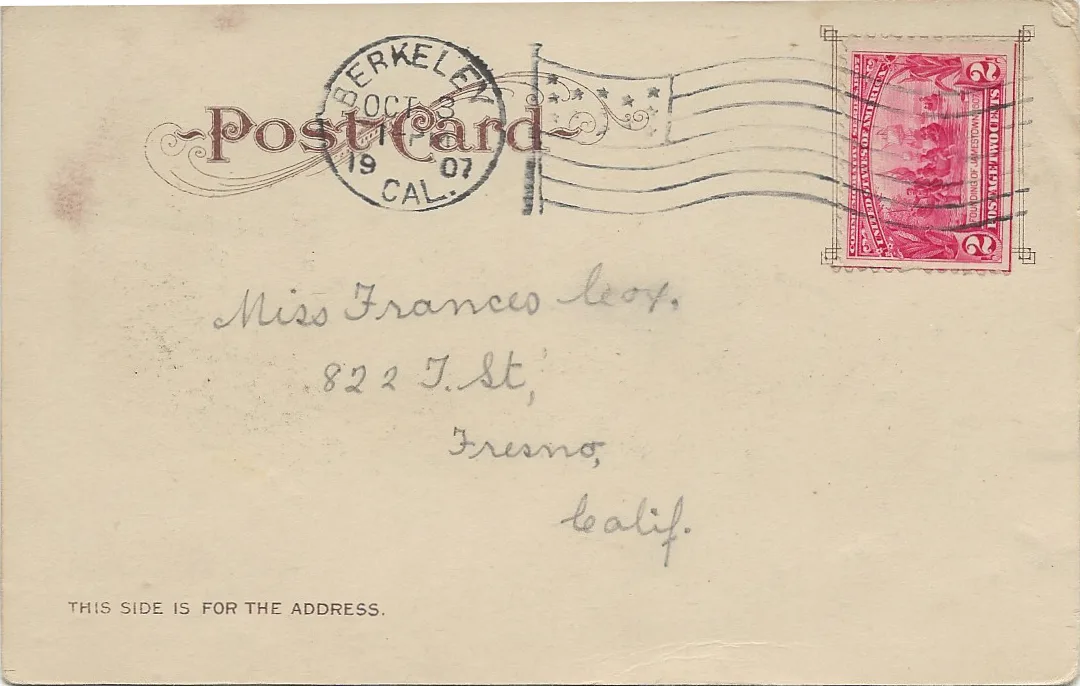 BERKELEY
OCT 3
1907
CAL.
Post Card
COMMEMORATIVE SERIES 1907
UNITED STATES OF AMERICA
FOUNDING OF JAMESTOWN 1607
POSTAGE TWO CENTS
2 2
Miss Frances Cox.
822 T. St,
Fresno,
Calif.
THIS SIDE IS FOR THE ADDRESS.